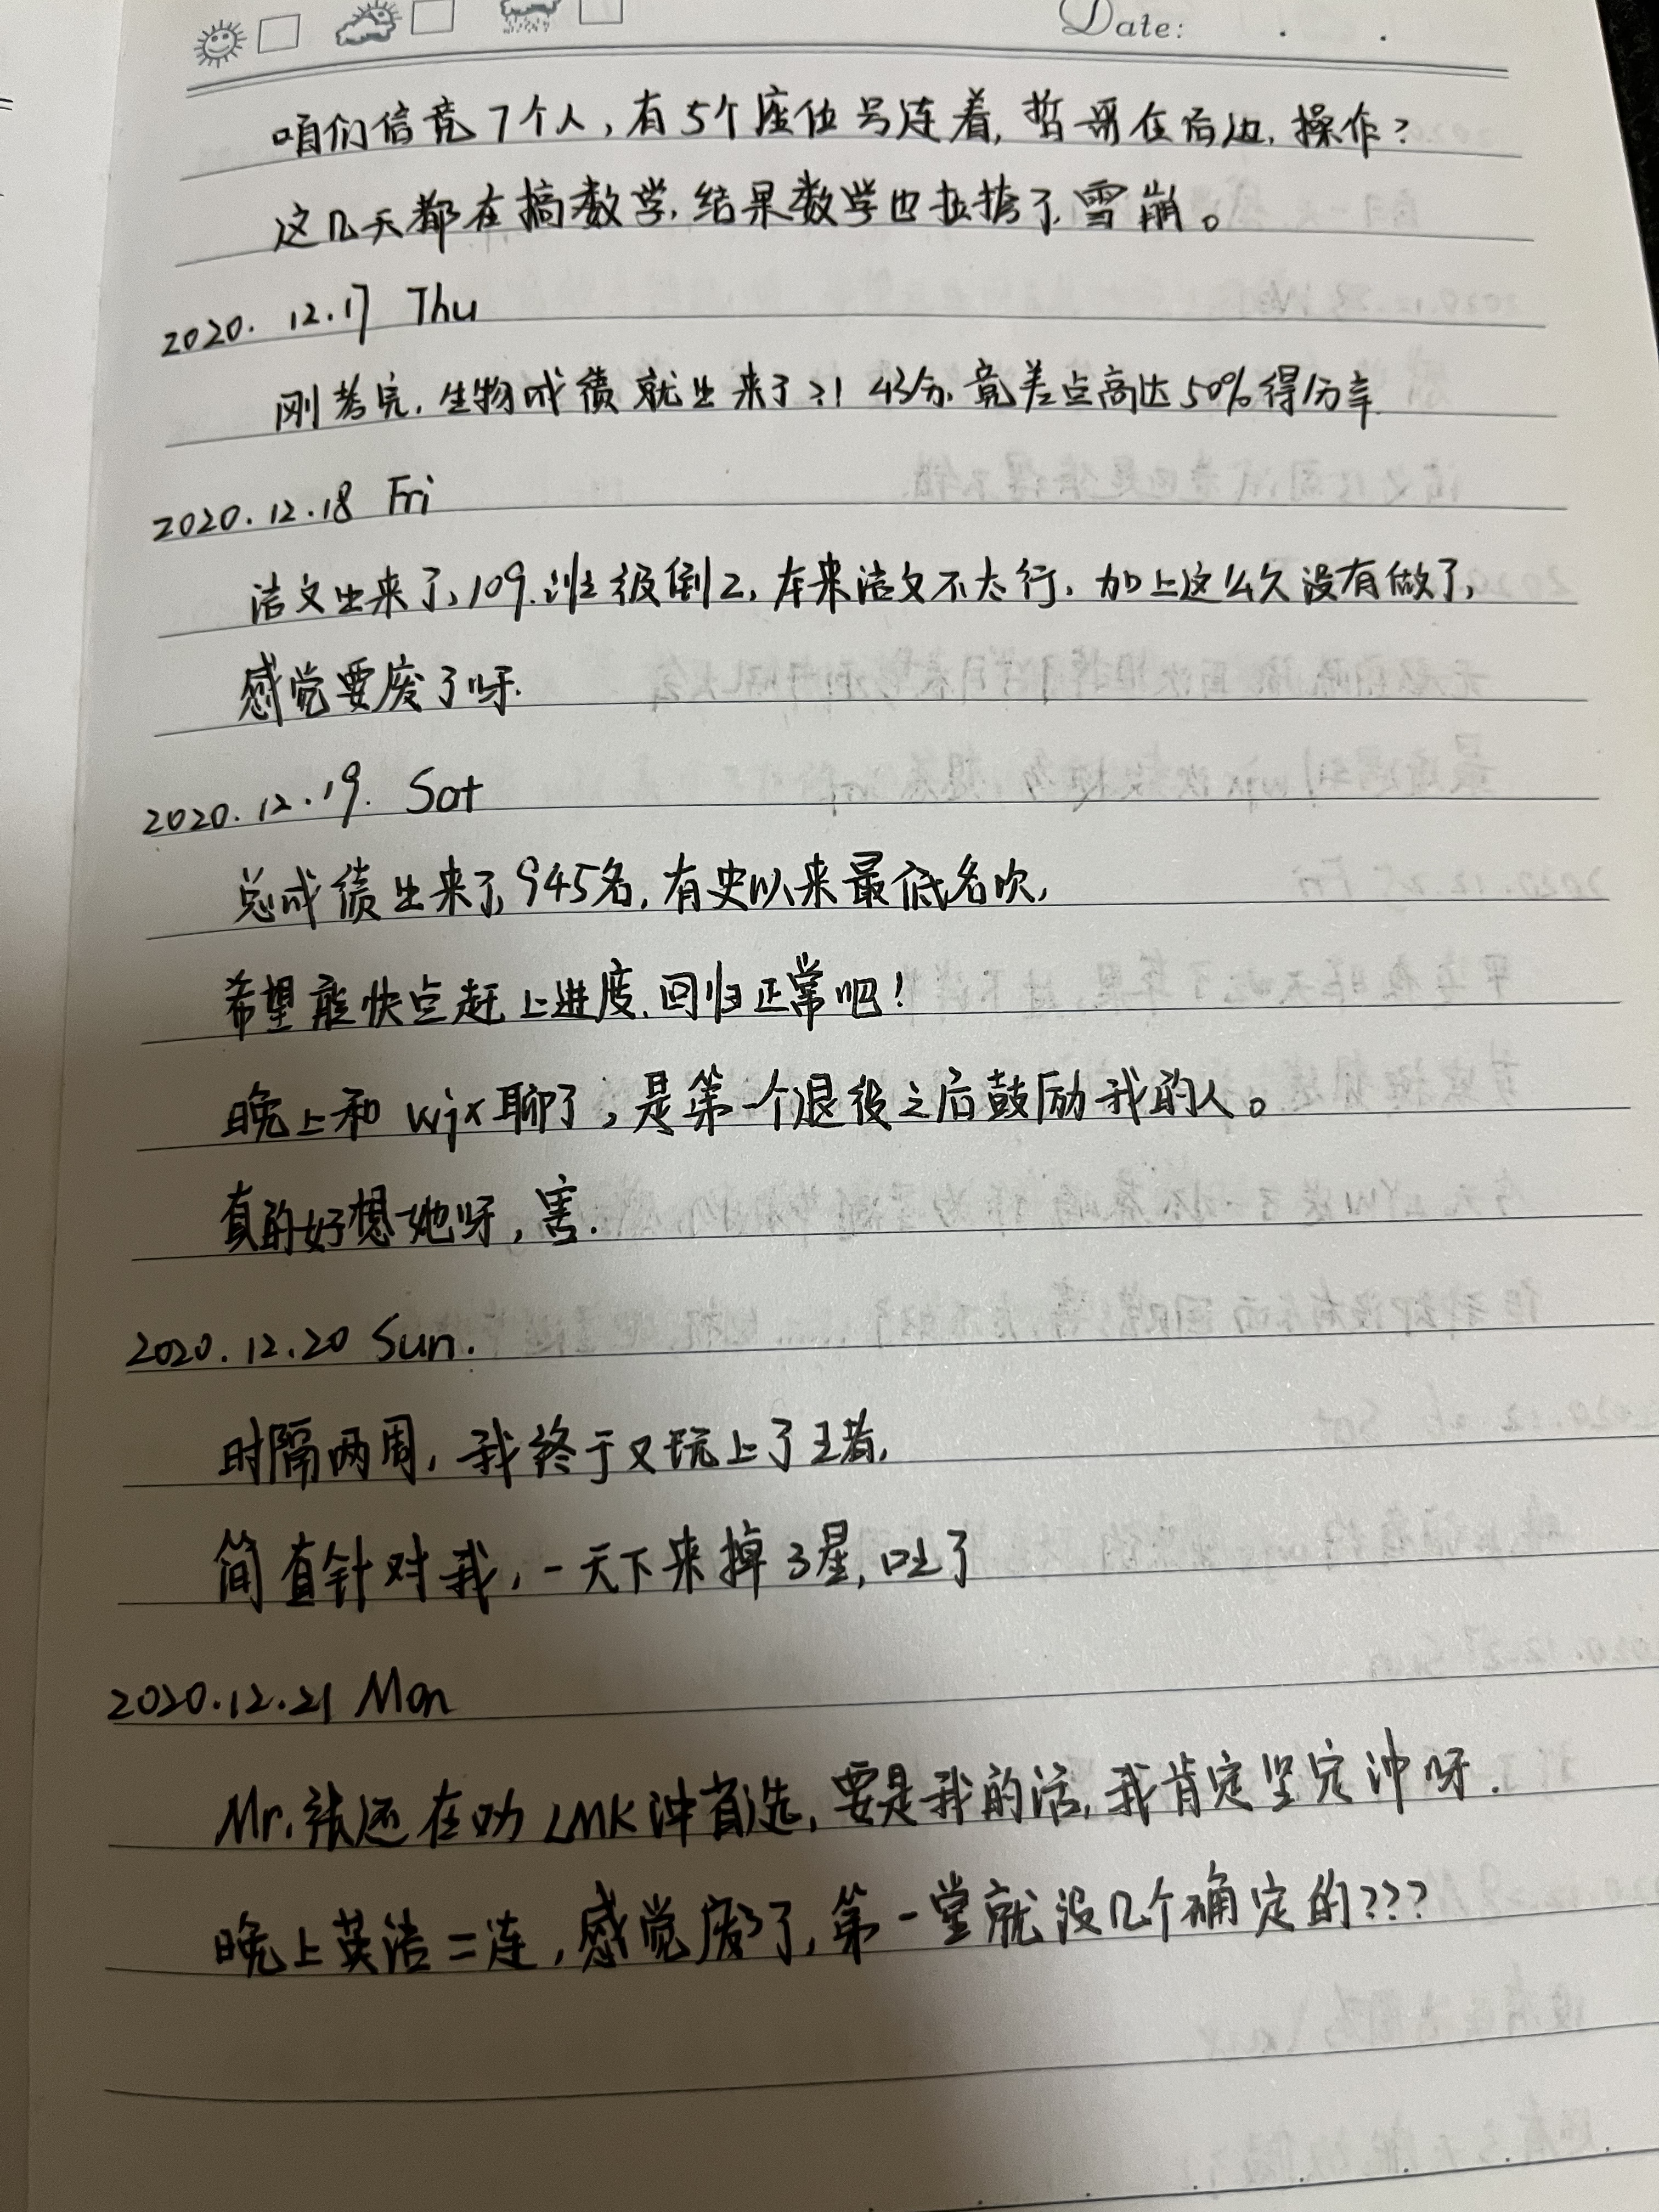 Date: . .
咱们信竞7个人,有5个座位号连着,哲哥在后边,操作?
这几天都在搞数学,结果数学也拉挎了,雪崩。
2020.12.17 Thu
刚考完,生物成绩就出来了?!43分,竟差点高达50%得分率
2020.12.18 Fri
语文出来了,109.班级倒2,本来语文不太行,加上这么久没有做了,
感觉要废了呀.
2020.12.19. Sat
总成绩出来了,945名,有史以来最低名次,
希望能快点赶上进度,回归正常吧!
晚上和wjx聊了,是第一个退役之后鼓励我的人。
真的好想她呀,害.
2020.12.20 Sun.
时隔两周,我终于又玩上了王者,
简直针对我,一天下来掉3星,吐了
2020.12.21 Mon
Mr.张还在劝LMK冲省选,要是我的话,我肯定坚定冲呀.
晚上英语二连,感觉废了,第一堂就没几个确定的???